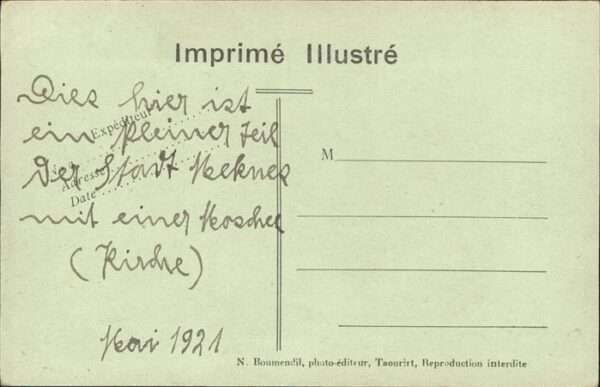 Imprimé Illustré
Dies hier ist
Expéditeur
ein kleiner Teil
Adresse
der Stadt Meknes
Date
mit einer Moschee
(Kirche)
Mai 1921
M
N. Boumendil, photo-éditeur, Taourirt, Reproduction interdite